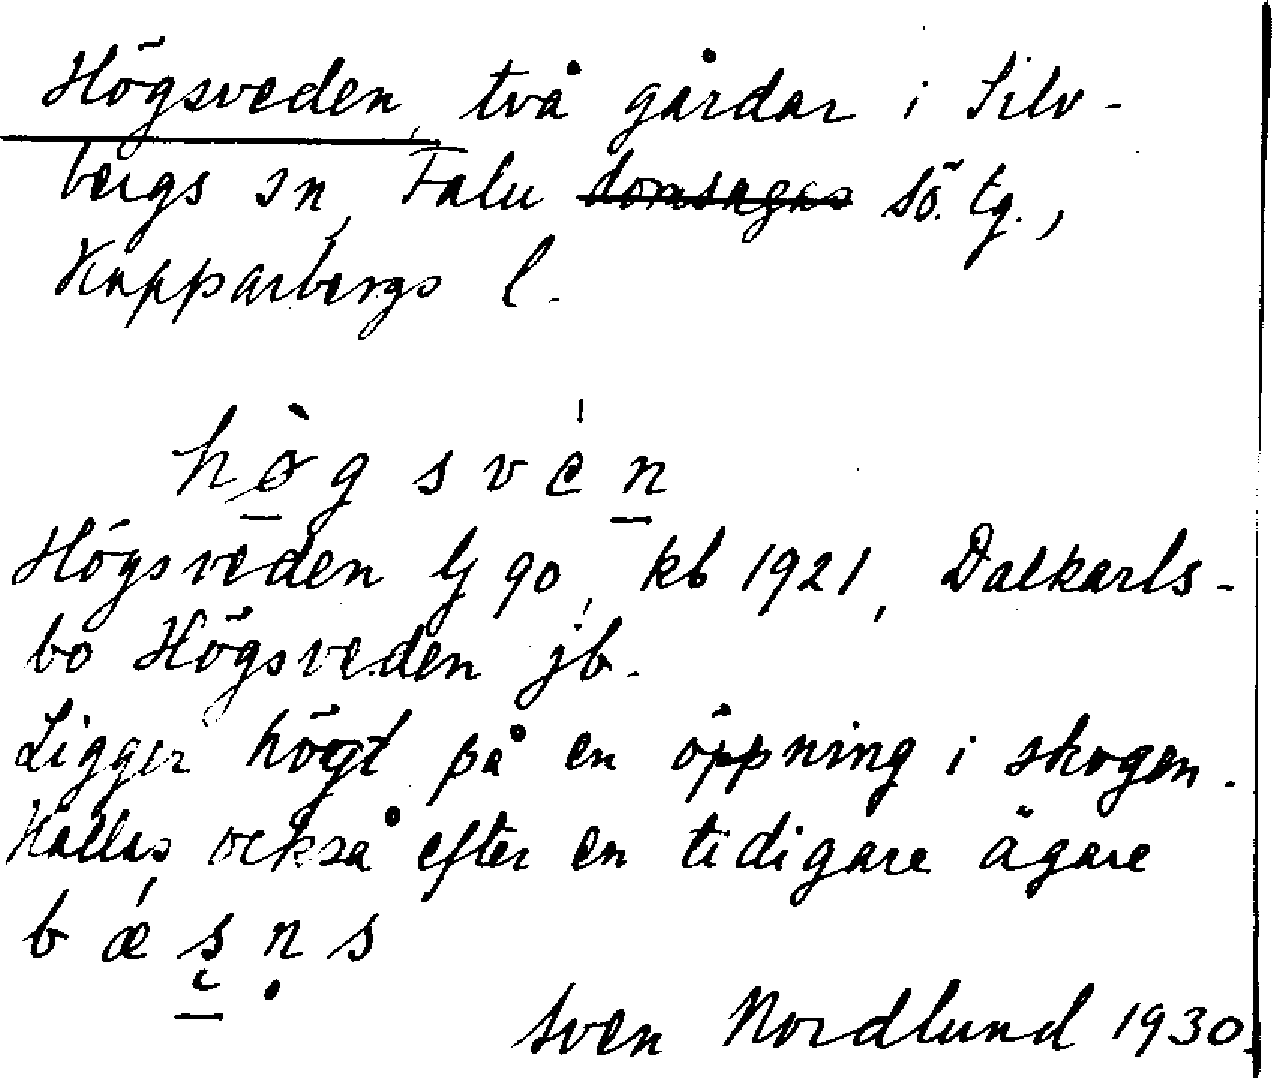 Högsveden, två gårdar i Silv-
bergs sn, Falu ~~domsagas~~ sö. tg.,
Kopparbergs l.
hø̀gsve̍n
Högsveden Gj 90, kb 1921, Dalkarls-
bo Högsveden jb.
Ligger högt på en öppning i skogen.
Kallas också efter en tidigare ägare
bǽsn̥s
Sven Nordlund 1930.